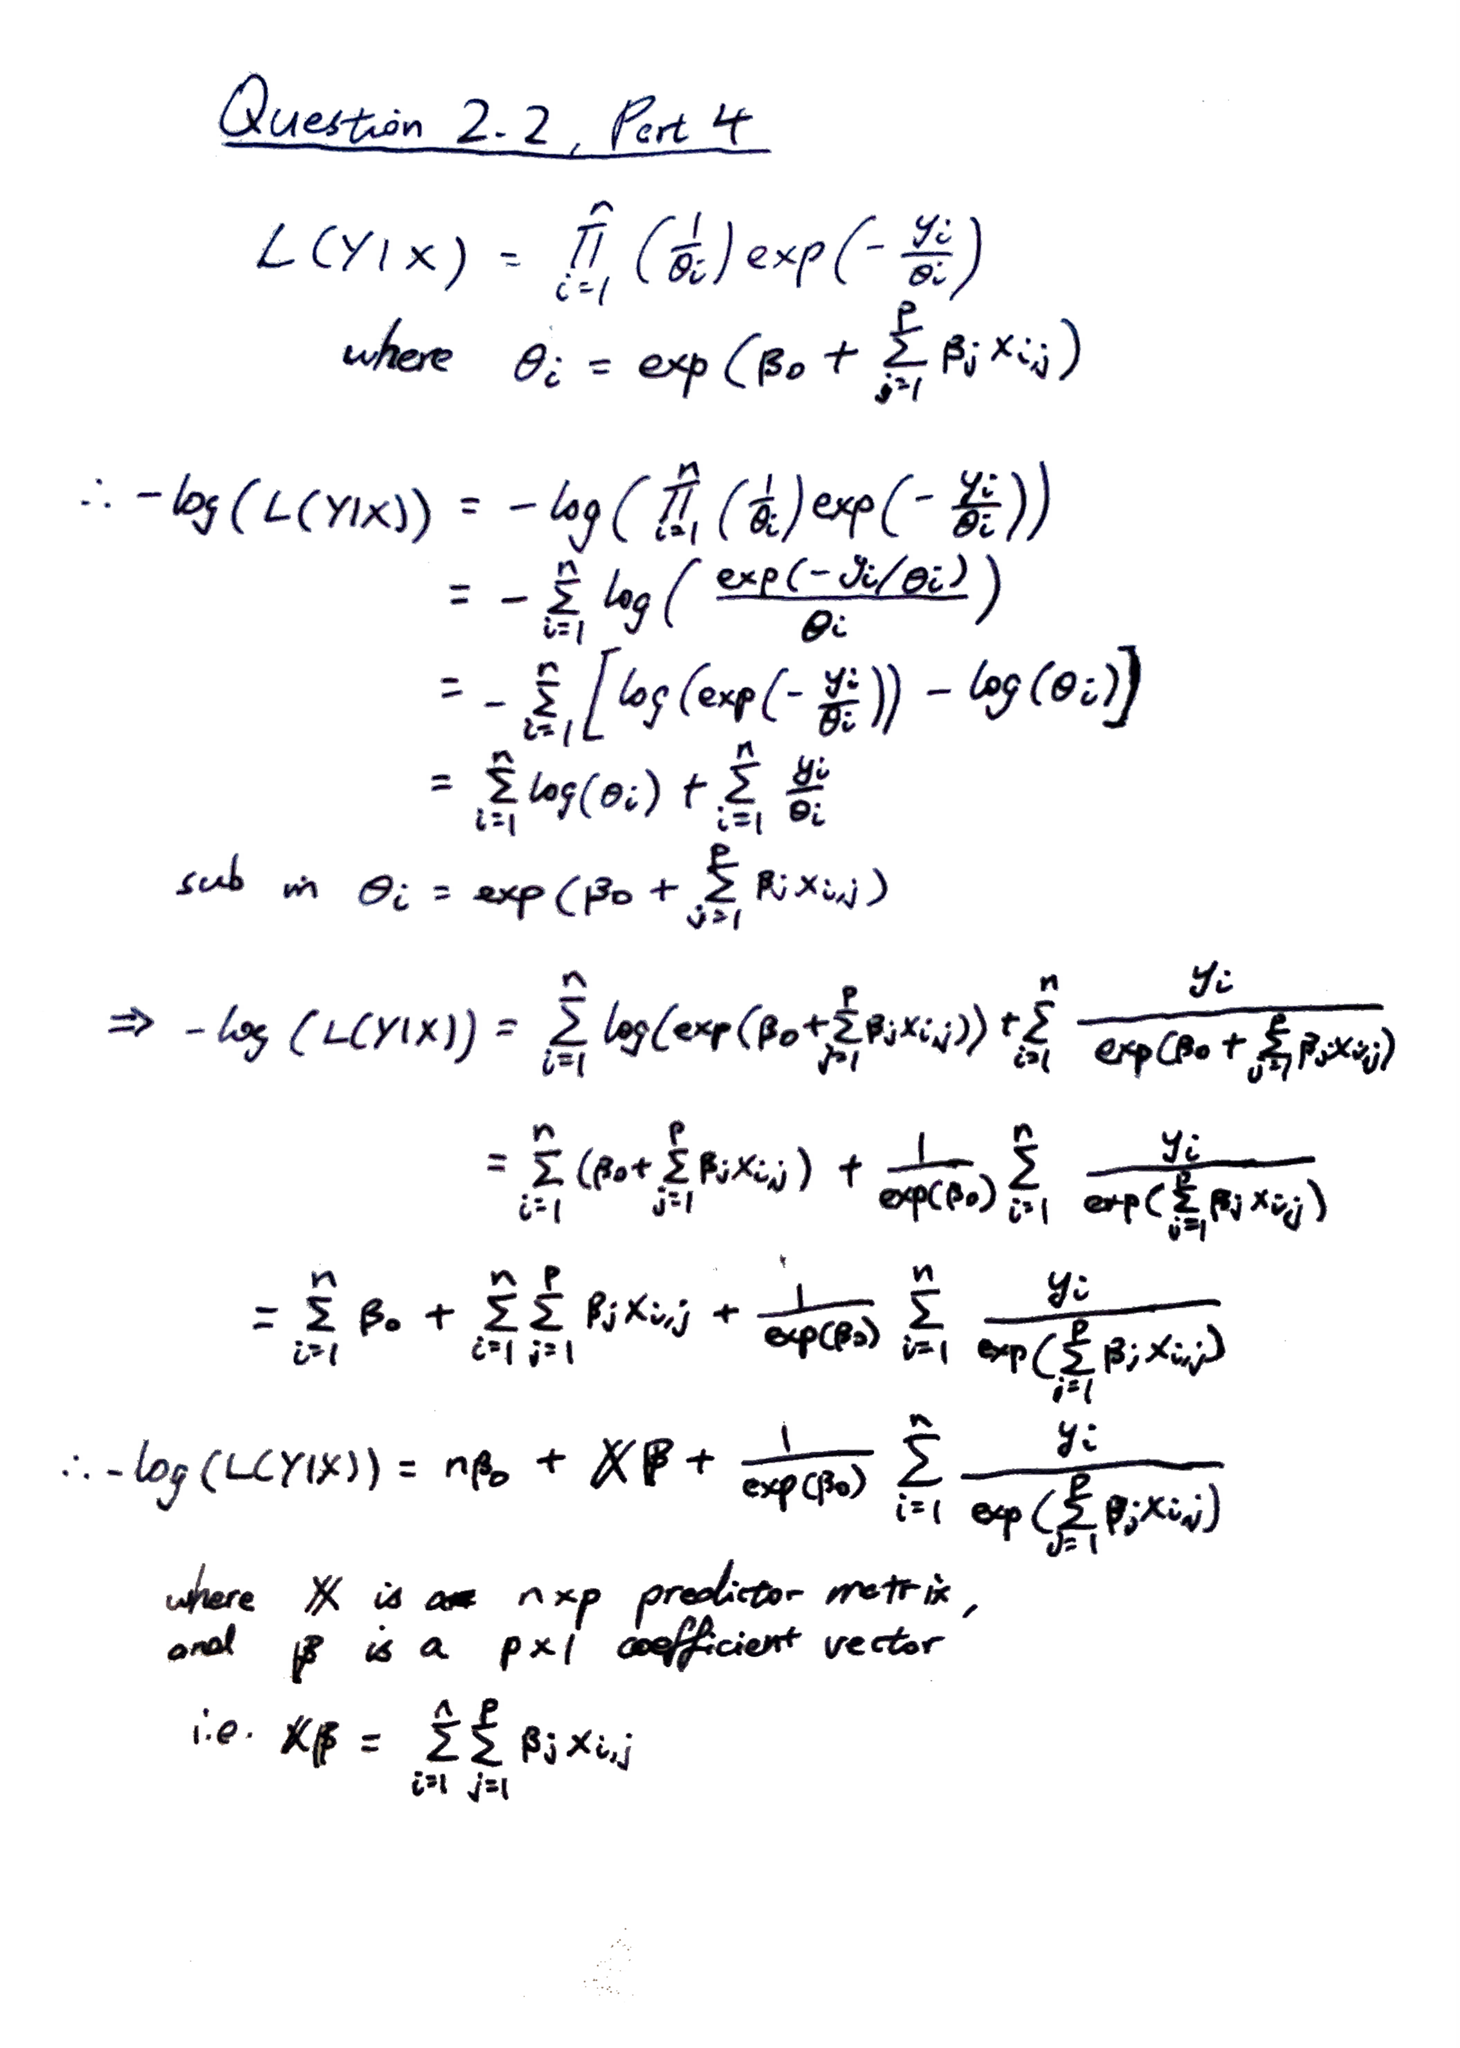 Question 2.2, Part 4
L(Y|X) = ∏_{i=1}^{n} (1/θi) exp(- yi/θi)
where θi = exp(β0 + ∑_{j=1}^{p} βj xi,j)
∴ -log(L(Y|X)) = -log(∏_{i=1}^{n} (1/θi) exp(- yi/θi))
= - ∑_{i=1}^{n} log( exp(-yi/θi) / θi )
= - ∑_{i=1}^{n} [log(exp(- yi/θi)) - log(θi)]
= ∑_{i=1}^{n} log(θi) + ∑_{i=1}^{n} yi/θi
sub in θi = exp(β0 + ∑_{j=1}^{p} βj xi,j)
⇒ -log(L(Y|X)) = ∑_{i=1}^{n} log(exp(β0 + ∑_{j=1}^{p} βj xi,j)) + ∑_{i=1}^{n} yi / exp(β0 + ∑_{j=1}^{p} βj xi,j)
= ∑_{i=1}^{n} (β0 + ∑_{j=1}^{p} βj xi,j) + 1/exp(β0) ∑_{i=1}^{n} yi / exp(∑_{j=1}^{p} βj xi,j)
= ∑_{i=1}^{n} β0 + ∑_{i=1}^{n} ∑_{j=1}^{p} βj xi,j + 1/exp(β0) ∑_{i=1}^{n} yi / exp(∑_{j=1}^{p} βj xi,j)
∴ -log(L(Y|X)) = nβ0 + Xβ + 1/exp(β0) ∑_{i=1}^{n} yi / exp(∑_{j=1}^{p} βj xi,j)
where X is a n×p predictor matrix,
and β is a p×1 coefficient vector
i.e. Xβ = ∑_{i=1}^{n} ∑_{j=1}^{p} βj xi,j